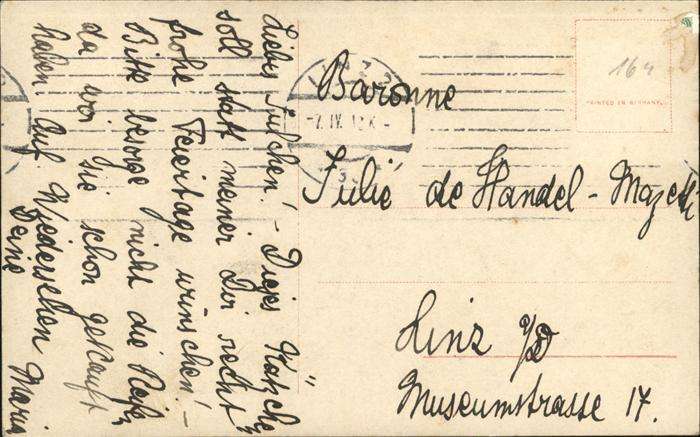 Liebes Julchen! - Dieses Kätzchen
soll statt meiner Dir recht
frohe Feiertage wünschen! -
Bitte besorge nicht die
da wir sie schon gekauft
haben Auf Wiedersehen
Deine Maria
7. IV. 12
Baronne
Julie de Handel-Mazetti
Linz a/D
Museumstrasse 17.
164
PRINTED IN GERMANY